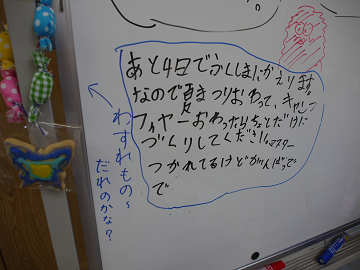 あと4日でふくしまにかえります。
なので夏まつりおわって、キャンプ
フャイヤーおわったらちょとだけに
づくりしてくださいマスター
つかれてるけどがんばって
で
わすれもの〜
だれのかな?